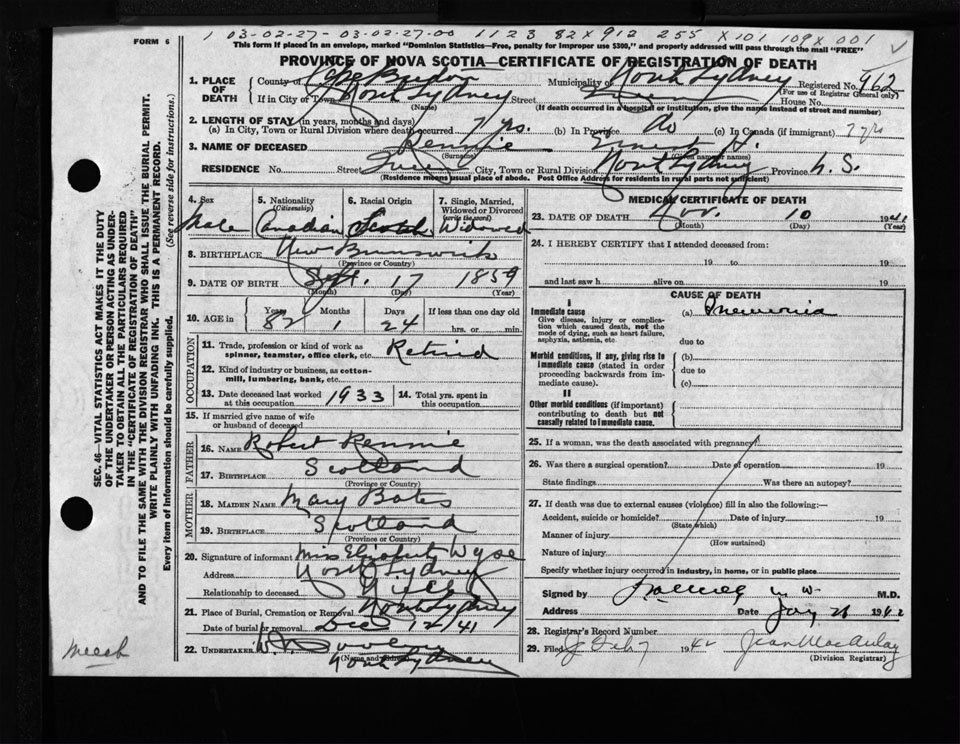 1 03-02-27- 03-02-27-00 1123 82 x 912 255 x101 109 x 001
FORM 6
This form if placed in an envelope, marked "Dominion Statistics—Free, penalty for improper use $300," and properly addressed will pass through the mail "FREE"
PROVINCE OF NOVA SCOTIA—CERTIFICATE OF REGISTRATION OF DEATH
1. PLACE OF DEATH County of Cape Breton Municipality of North Sydney Registered No. 962
(For use of Registrar General only)
If in City or Town North Sydney Street House No.
(Name) (If death occurred in a hospital or institution, give the name instead of street and number)
2. LENGTH OF STAY (in years, months and days)
(a) In City, Town or Rural Division where death occurred 7 yrs. (b) In Province do (c) In Canada (if immigrant)
3. NAME OF DECEASED Rennie Ernest H.
(Surname) (Given name or names)
RESIDENCE No. Street City, Town or Rural Division North Sydney Province N.S.
(Residence means usual place of abode. Post Office Address for residents in rural parts not sufficient)
4. Sex Male
5. Nationality (Citizenship) Canadian
6. Racial Origin Scotch
7. Single, Married, Widowed or Divorced (write the word) Widowed
8. BIRTHPLACE New Brunswick
(Province or Country)
9. DATE OF BIRTH Sept. 17 1859
(Month) (Day) (Year)
10. AGE in Years 82 Months 1 Days 24 If less than one day old hrs. or min.
OCCUPATION
11. Trade, profession or kind of work as spinner, teamster, office clerk, etc. Retired
12. Kind of industry or business, as cotton-mill, lumbering, bank, etc.
13. Date deceased last worked at this occupation 1933 14. Total yrs. spent in this occupation
15. If married give name of wife or husband of deceased
FATHER
16. NAME Robert Rennie
17. BIRTHPLACE Scotland
(Province or Country)
MOTHER
18. MAIDEN NAME Mary Bates
19. BIRTHPLACE Scotland
(Province or Country)
20. Signature of informant Miss Elizabeth Wyse
Address North Sydney
Relationship to deceased
21. Place of Burial, Cremation or Removal North Sydney
Date of burial or removal Dec 12/41
22. UNDERTAKER
(Name and address) North Sydney
MEDICAL CERTIFICATE OF DEATH
23. DATE OF DEATH Nov. 10 1941
(Month) (Day) (Year)
24. I HEREBY CERTIFY that I attended deceased from:
19 to 19
and last saw h alive on 19
CAUSE OF DEATH
I
Immediate cause (a) Pneumonia
Give disease, injury or complication which caused death, not the mode of dying, such as heart failure, asphyxia, asthenia, etc.
due to
Morbid conditions, if any, giving rise to immediate cause (stated in order proceeding backwards from immediate cause).
(b)
due to
(c)
II
Other morbid conditions (if important) contributing to death but not causally related to immediate cause.
25. If a woman, was the death associated with pregnancy?
26. Was there a surgical operation? Date of operation 19
State findings Was there an autopsy?
27. If death was due to external causes (violence) fill in also the following:—
Accident, suicide or homicide? Date of injury 19
(State which)
Manner of injury
(How sustained)
Nature of injury
Specify whether injury occurred in industry, in home, or in public place
Signed by M.D.
Address Date Jany 26 1942
28. Registrar's Record Number
29. Filed Feb 7 1942 Jean MacAulay
(Division Registrar)
SEC. 46—VITAL STATISTICS ACT MAKES IT THE DUTY
OF THE UNDERTAKER OR PERSON ACTING AS UNDER-
TAKER TO OBTAIN ALL THE PARTICULARS REQUIRED
IN THE "CERTIFICATE OF REGISTRATION OF DEATH"
AND TO FILE THE SAME WITH THE DIVISION REGISTRAR WHO SHALL ISSUE THE BURIAL PERMIT.
WRITE PLAINLY WITH UNFADING INK. THIS IS A PERMANENT RECORD.
Every item of Information should be carefully supplied. (See reverse side for instructions.)